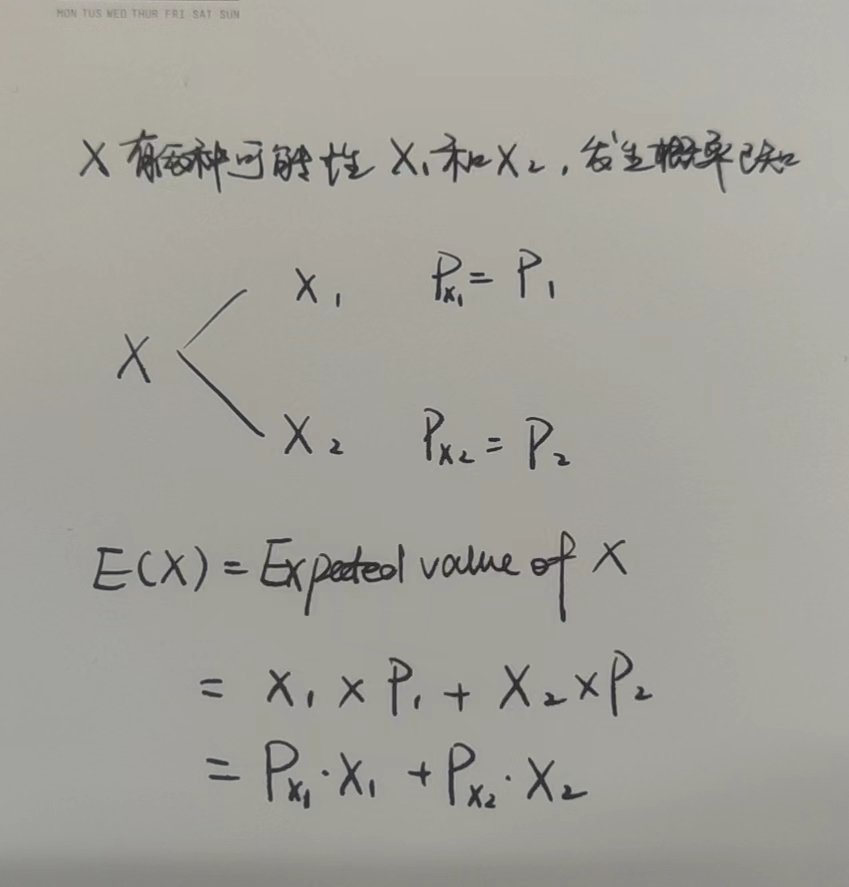 MON TUS WED THUR FRI SAT SUN
X 有两种可能性 X₁ 和 X₂, 发生概率已知
X₁ Pₓ₁ = P₁
X
X₂ Pₓ₂ = P₂
E(X) = Expected value of X
= X₁ × P₁ + X₂ × P₂
= Pₓ₁ · X₁ + Pₓ₂ · X₂